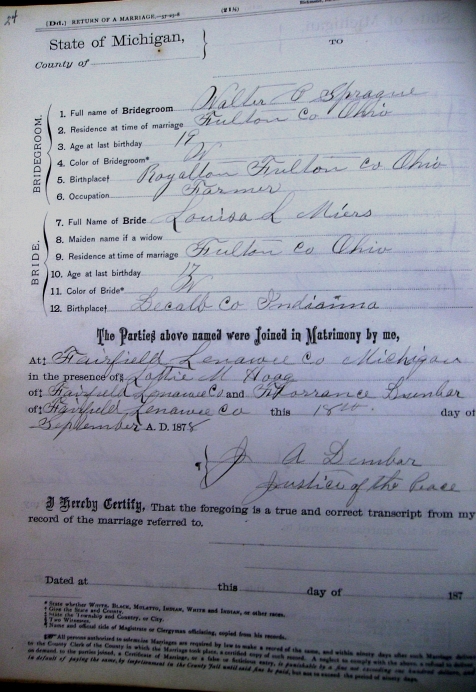 24
[Dd.] RETURN OF A MARRIAGE.—37-49-8 (218)
State of Michigan, } TO
County of
BRIDEGROOM.
1. Full name of Bridegroom Walter P Sprague
2. Residence at time of marriage Fulton Co Ohio
3. Age at last birthday 19
4. Color of Bridegroom* W
5. Birthplace† Royalton Fulton Co Ohio
6. Occupation Farmer
BRIDE.
7. Full Name of Bride Louisa L Miers
8. Maiden name if a widow
9. Residence at time of marriage Fulton Co Ohio
10. Age at last birthday 17
11. Color of Bride* W
12. Birthplace† Decalb Co Indianna
The Parties above named were Joined in Matrimony by me,
At‡ Fairfield Lenawee Co Michigan
in the presence of§ Lottie M Hoag
of‡ Fairfield Lenawee Co and Florrance Dunbar
of‡ Fairfield Lenawee Co this 18th day of
September A. D. 1878
J A Dunbar
Justice of the Peace
I Hereby Certify, That the foregoing is a true and correct transcript from my
record of the marriage referred to.
Dated at this day of 187
* State whether WHITE, BLACK, MULATTO, INDIAN, WHITE and INDIAN, or other races.
† Give the State and County.
‡ State the Township and Country, or City.
§ Two Witnesses.
Name and official title of Magistrate or Clergyman officiating, copied from his records.
All persons authorized to solemnize Marriages are required by law to make a record of the same, and within ninety days after each Marriage deliver
to the County Clerk of the County in which the Marriage took place, a certified copy of such record. A neglect to comply with the above, a refusal to deliver
on demand to the parties joined, a Certificate of Marriage, or a false or fictitious entry, is punishable by a fine not exceeding one hundred dollars
in default of paying the same, by imprisonment in the County Jail until said fine be paid, but not to exceed the period of ninety days.